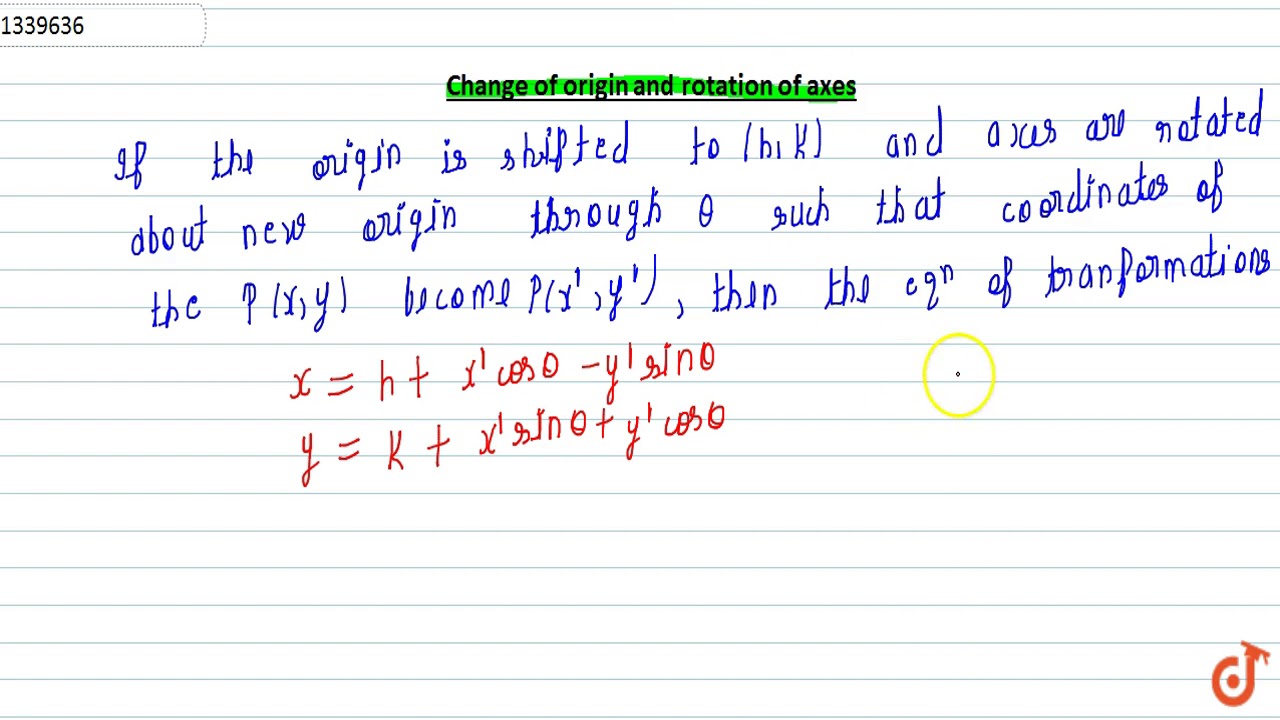 1339636
Change of origin and rotation of axes
If the origin is shifted to (h, k) and axes are rotated
about new origin through θ such that coordinates of
the P(x, y) become P(x', y'), then the eqn of tranformations
x = h + x' cosθ - y' sinθ
y = k + x' sinθ + y' cosθ